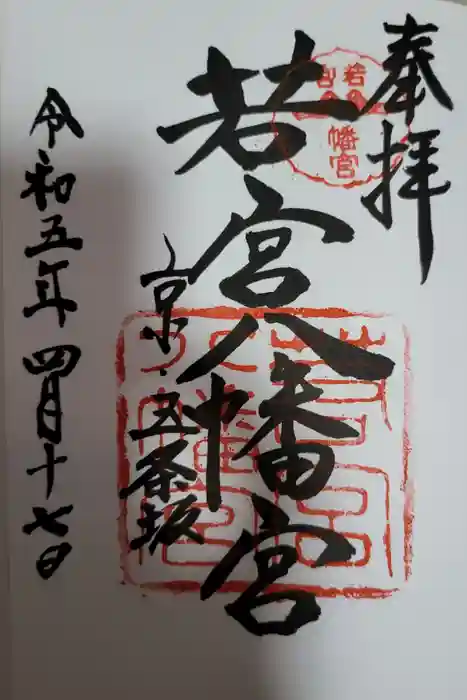 奉拝
若宮八幡宮
京・五条坂
令和五年四月十七日
若宮八
幡宮